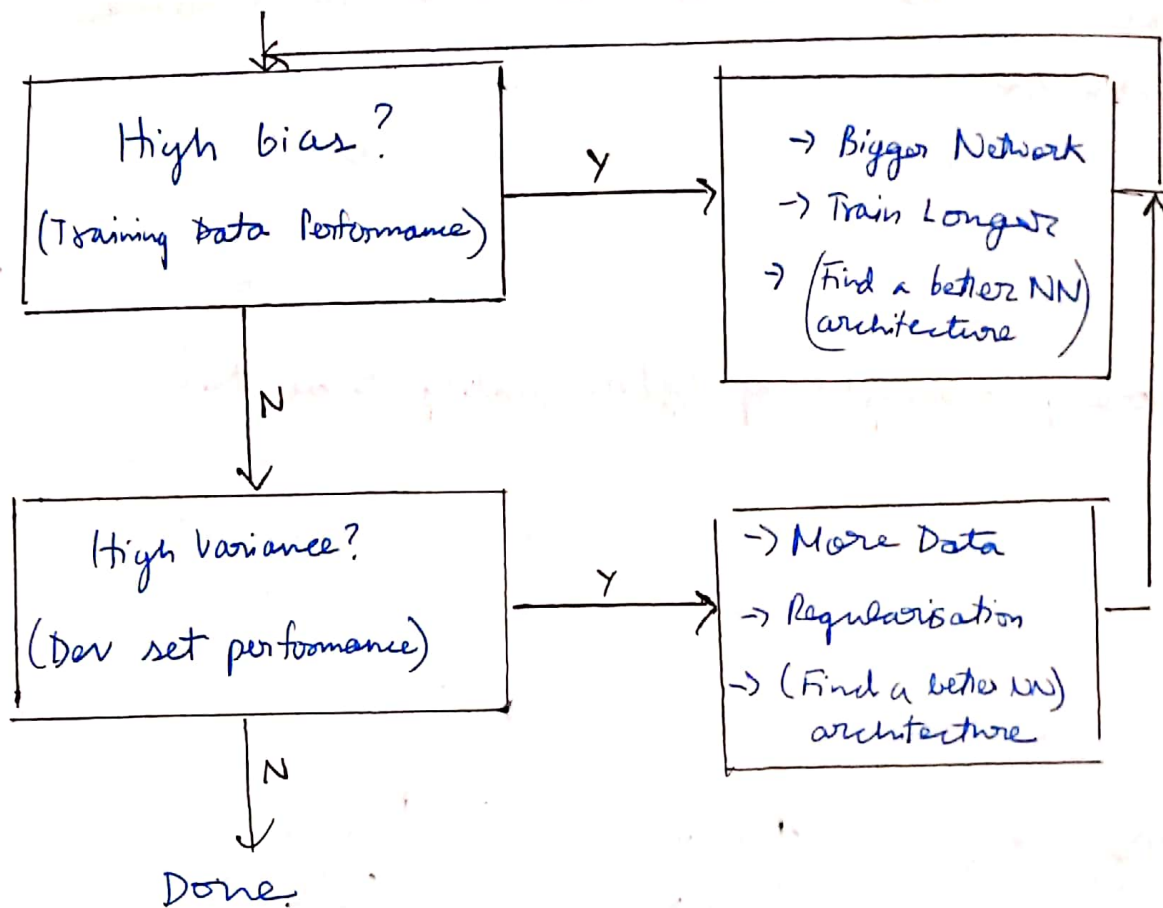 High bias?
(Training Data Performance)
Y
→ Bigger Network
→ Train Longer
→ (Find a better NN)
architecture
N
High Variance?
(Dev set performance)
Y
→ More Data
→ Regularisation
→ (Find a better NN)
architecture
N
Done.